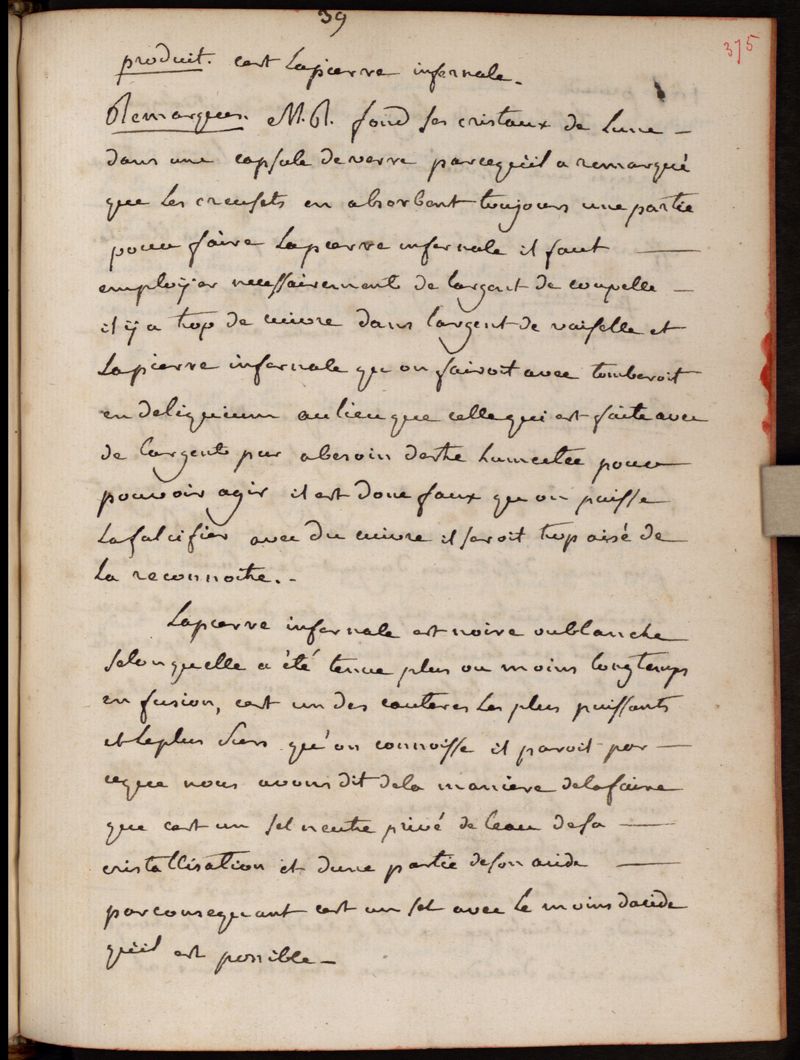 39
375
produit. cest Lapierre infernale.
Remarques. M.R. fond ses cristaux de Lune —
dans une capsule de verre parcequ'il a remarqué
que Les creusets en absorbent toujours une partie
pour faire Lapierre infernale il faut —
employer necessairement de largent de coupelle —
il y a trop de cuivre dans largent de vaiselle et
Lapierre infernale qu on fairoit avec tomberoit
en deliquium aulieu que celle qui est faite avec
de largent pur abesoin destre humectee pour
pouvoir agir il est donc faux qu on puisse
La falcifier avec du cuivre il seroit trop aisé de
La reconnoitre. -
Lapierre infernale est noire oublanche
selon quelle a été tenue plus ou moins longtemps
en fusion, cest un des cauteres Les plus puissants
et Leplus surs qu'on connoisse il paroit par —
ceque nous avons dit dela maniere delafaire
que cest un sel neutre privé de leau desa —
cristallisation et dune partie deson acide —
parconsequant cest un sel avec Le moins dacide
qu'il est possible —